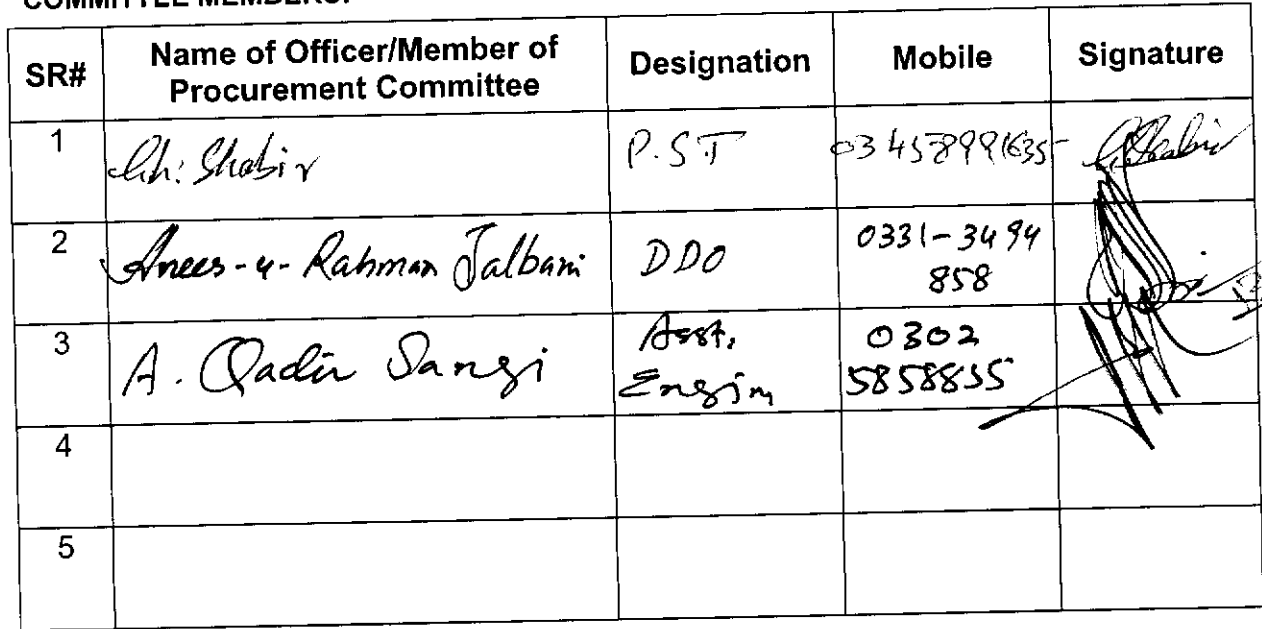 COMMITTEE MEMBERS:
SR# Name of Officer/Member of Procurement Committee Designation Mobile Signature
1 Gh: Shabir P.S.T
2 Anees-u-Rahman Jalbani DDO 0331-3494
858
3 A. Qadir Sangi Asst. 0302
Engin 5858835
4
5